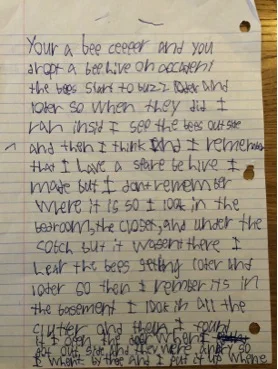 Your a bee ceeeer and you
dropt a bee hive on accident
the bees start to buzz loter and
loter so when they did I
ran insid I see the bees outside
and then I think and I remember
that I have a spare be hive I
made but I dont remember
Where it is so I look in the
bedroom, the closet, and under the
cotch but it wasent there I
hear the bees getting loter and
loter so then I rember its in
the basement I look in all the
clutter and then I found
it I open the door when I
got out side and they were so
I whent by tree and I put it up where